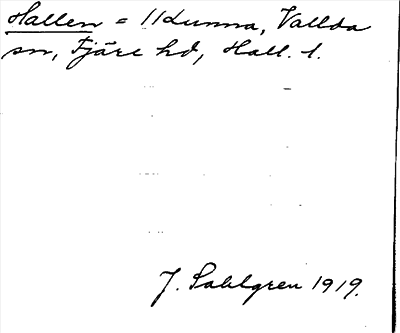 Hallen = 11 Kunna, Vallda
sn, Fjäre hd, Hall. l.
J. Sahlgren 1919.